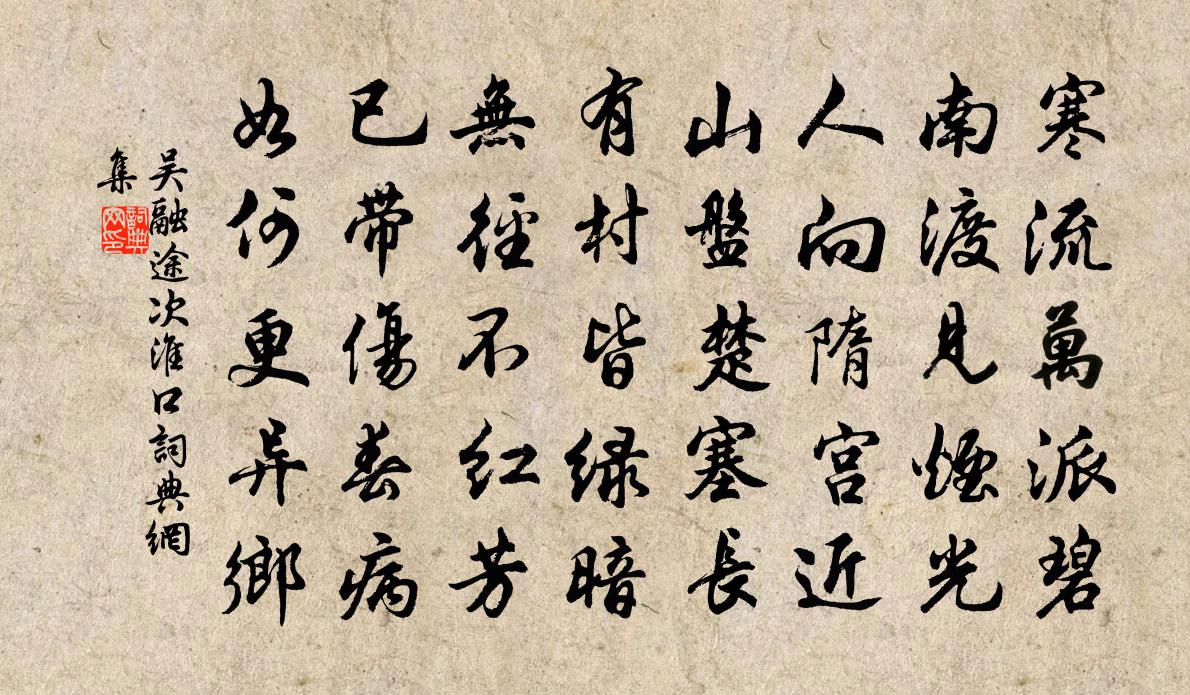 寒流萬派碧
南渡見煙光
人向隋宫近
山盤楚塞長
有村皆緑暗
無徑不红芳
已帶傷春病
如何更异鄉
吴融途次淮口詞典網
集
詞典
网印